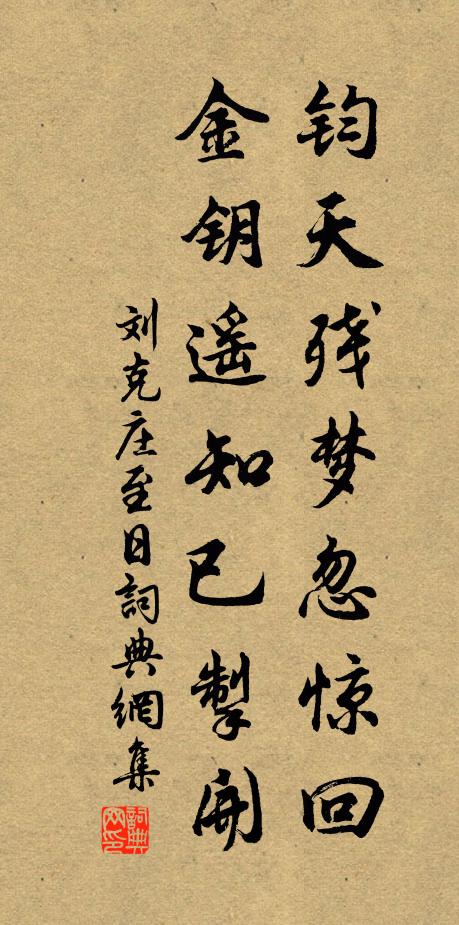 钧天残梦忽惊回
金钥遥知已掣开
刘克庄至日詞典網集
詞典网印